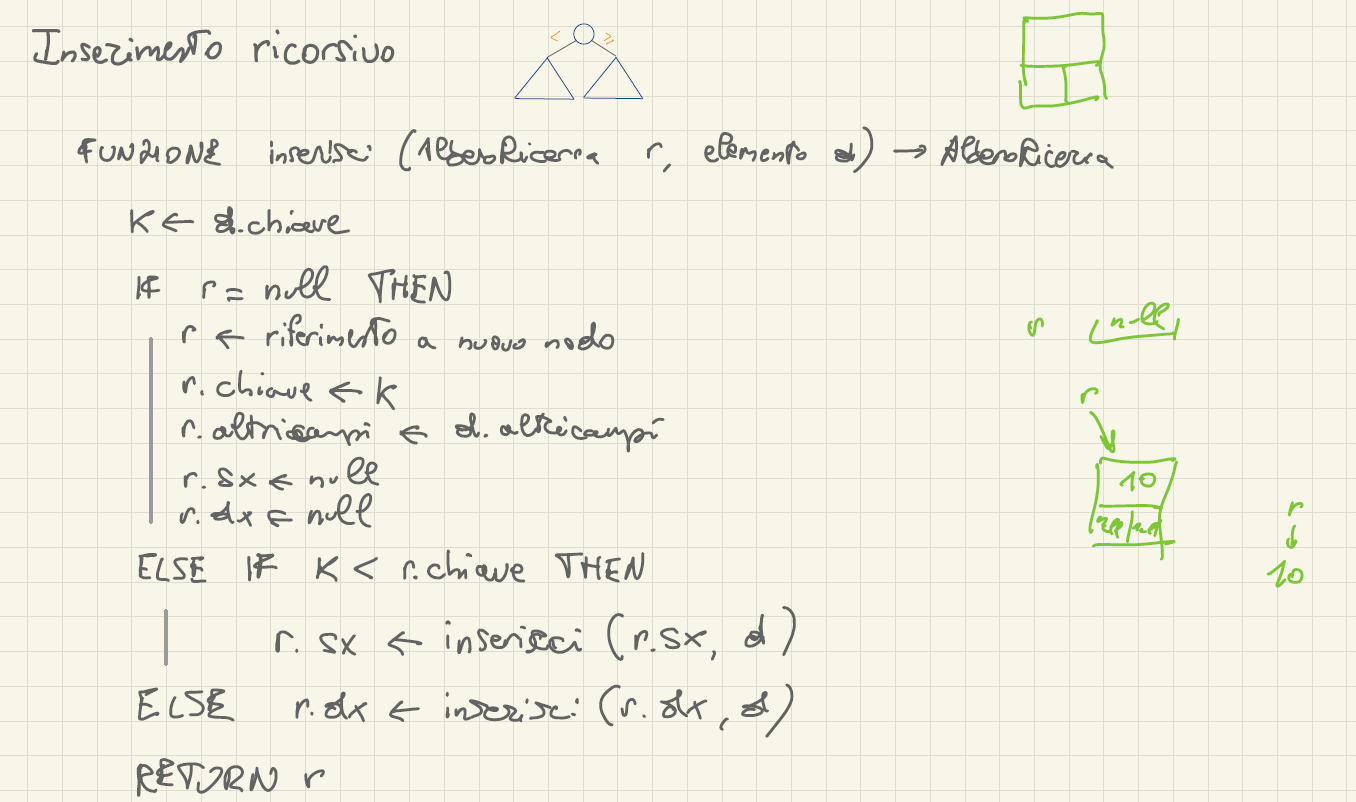 Inserimento ricorsivo
< ≥
FUNZIONE inserisci (AlberoRicerca r, elemento d) → AlberoRicerca
K ← d.chiave
IF r = null THEN
r ← riferimento a nuovo nodo
r.chiave ← K
r.altricampi ← d.altricampi
r.sx ← null
r.dx ← null
ELSE IF K < r.chiave THEN
r.sx ← inserisci (r.sx, d)
ELSE r.dx ← inserisci (r.dx, d)
RETURN r
r null
r
10
null null
r
↓
10